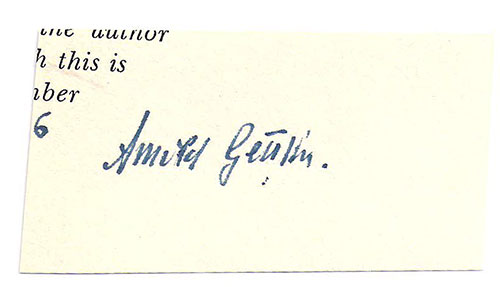 the author
h this is
nber
6
Arnold